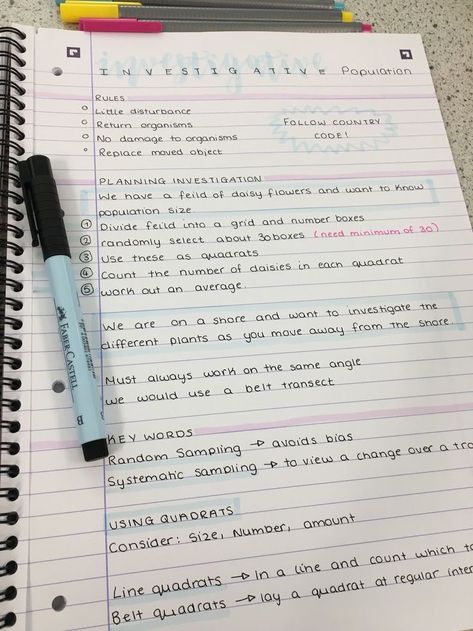 investigative
INVESTIGATIVE Population
RULES
Little disturbance
Return organisms
No damage to organisms
Replace moved object
FOLLOW COUNTRY
CODE!
PLANNING INVESTIGATION
We have a feild of daisy flowers and want to know
population size
1 Divide feild into a grid and number boxes
2 randomly select about 30 boxes (need minimum of 30)
3 Use these as quadrats
4 Count the number of daisies in each quadrat
5 work out an average.
We are on a shore and want to investigate the
different plants as you move away from the shore.
Must always work on the same angle
we would use a belt transect
KEY WORDS
Random Sampling → avoids bias
Systematic sampling → to view a change over a
USING QUADRATS
Consider: Size, Number, amount
Line quadrats → In a line and count which
Belt quadrats → lay a quadrat at regular
FABER-CASTELL
B